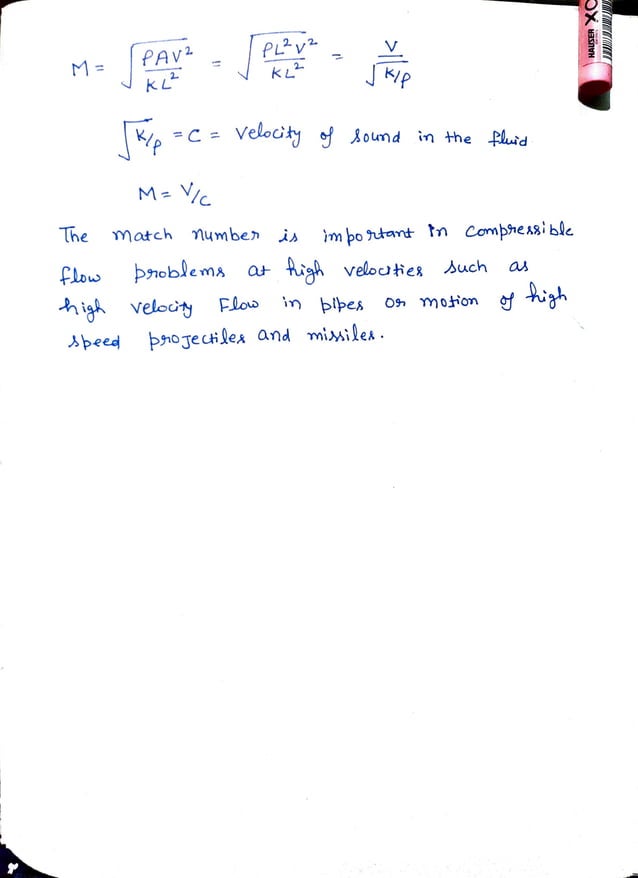 M = √(ρAV²/KL²) = √(ρL²V²/KL²) = V/√(K/ρ)
√K/ρ = C = Velocity of sound in the fluid
M = V/C
The match number is important in compressible
flow problems at high velocities such as
high velocity Flow in pipes or motion of high
speed projectiles and missiles.
HAUSER XO